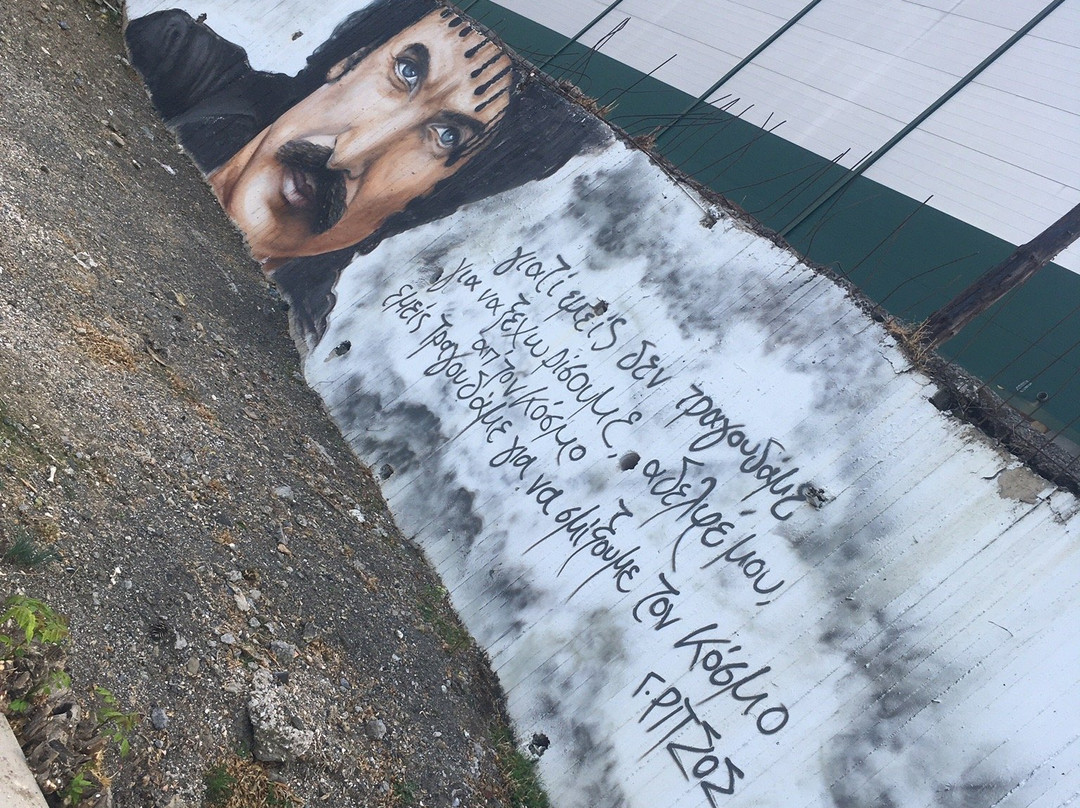 γιατί εμείς δεν τραγουδάμε
για να ξεχωρίσουμε, αδελφέ μου,
απ' τον κόσμο
εμείς τραγουδάμε για να σμίξουμε τον κόσμο
Γ. ΡΙΤΣΟΣ